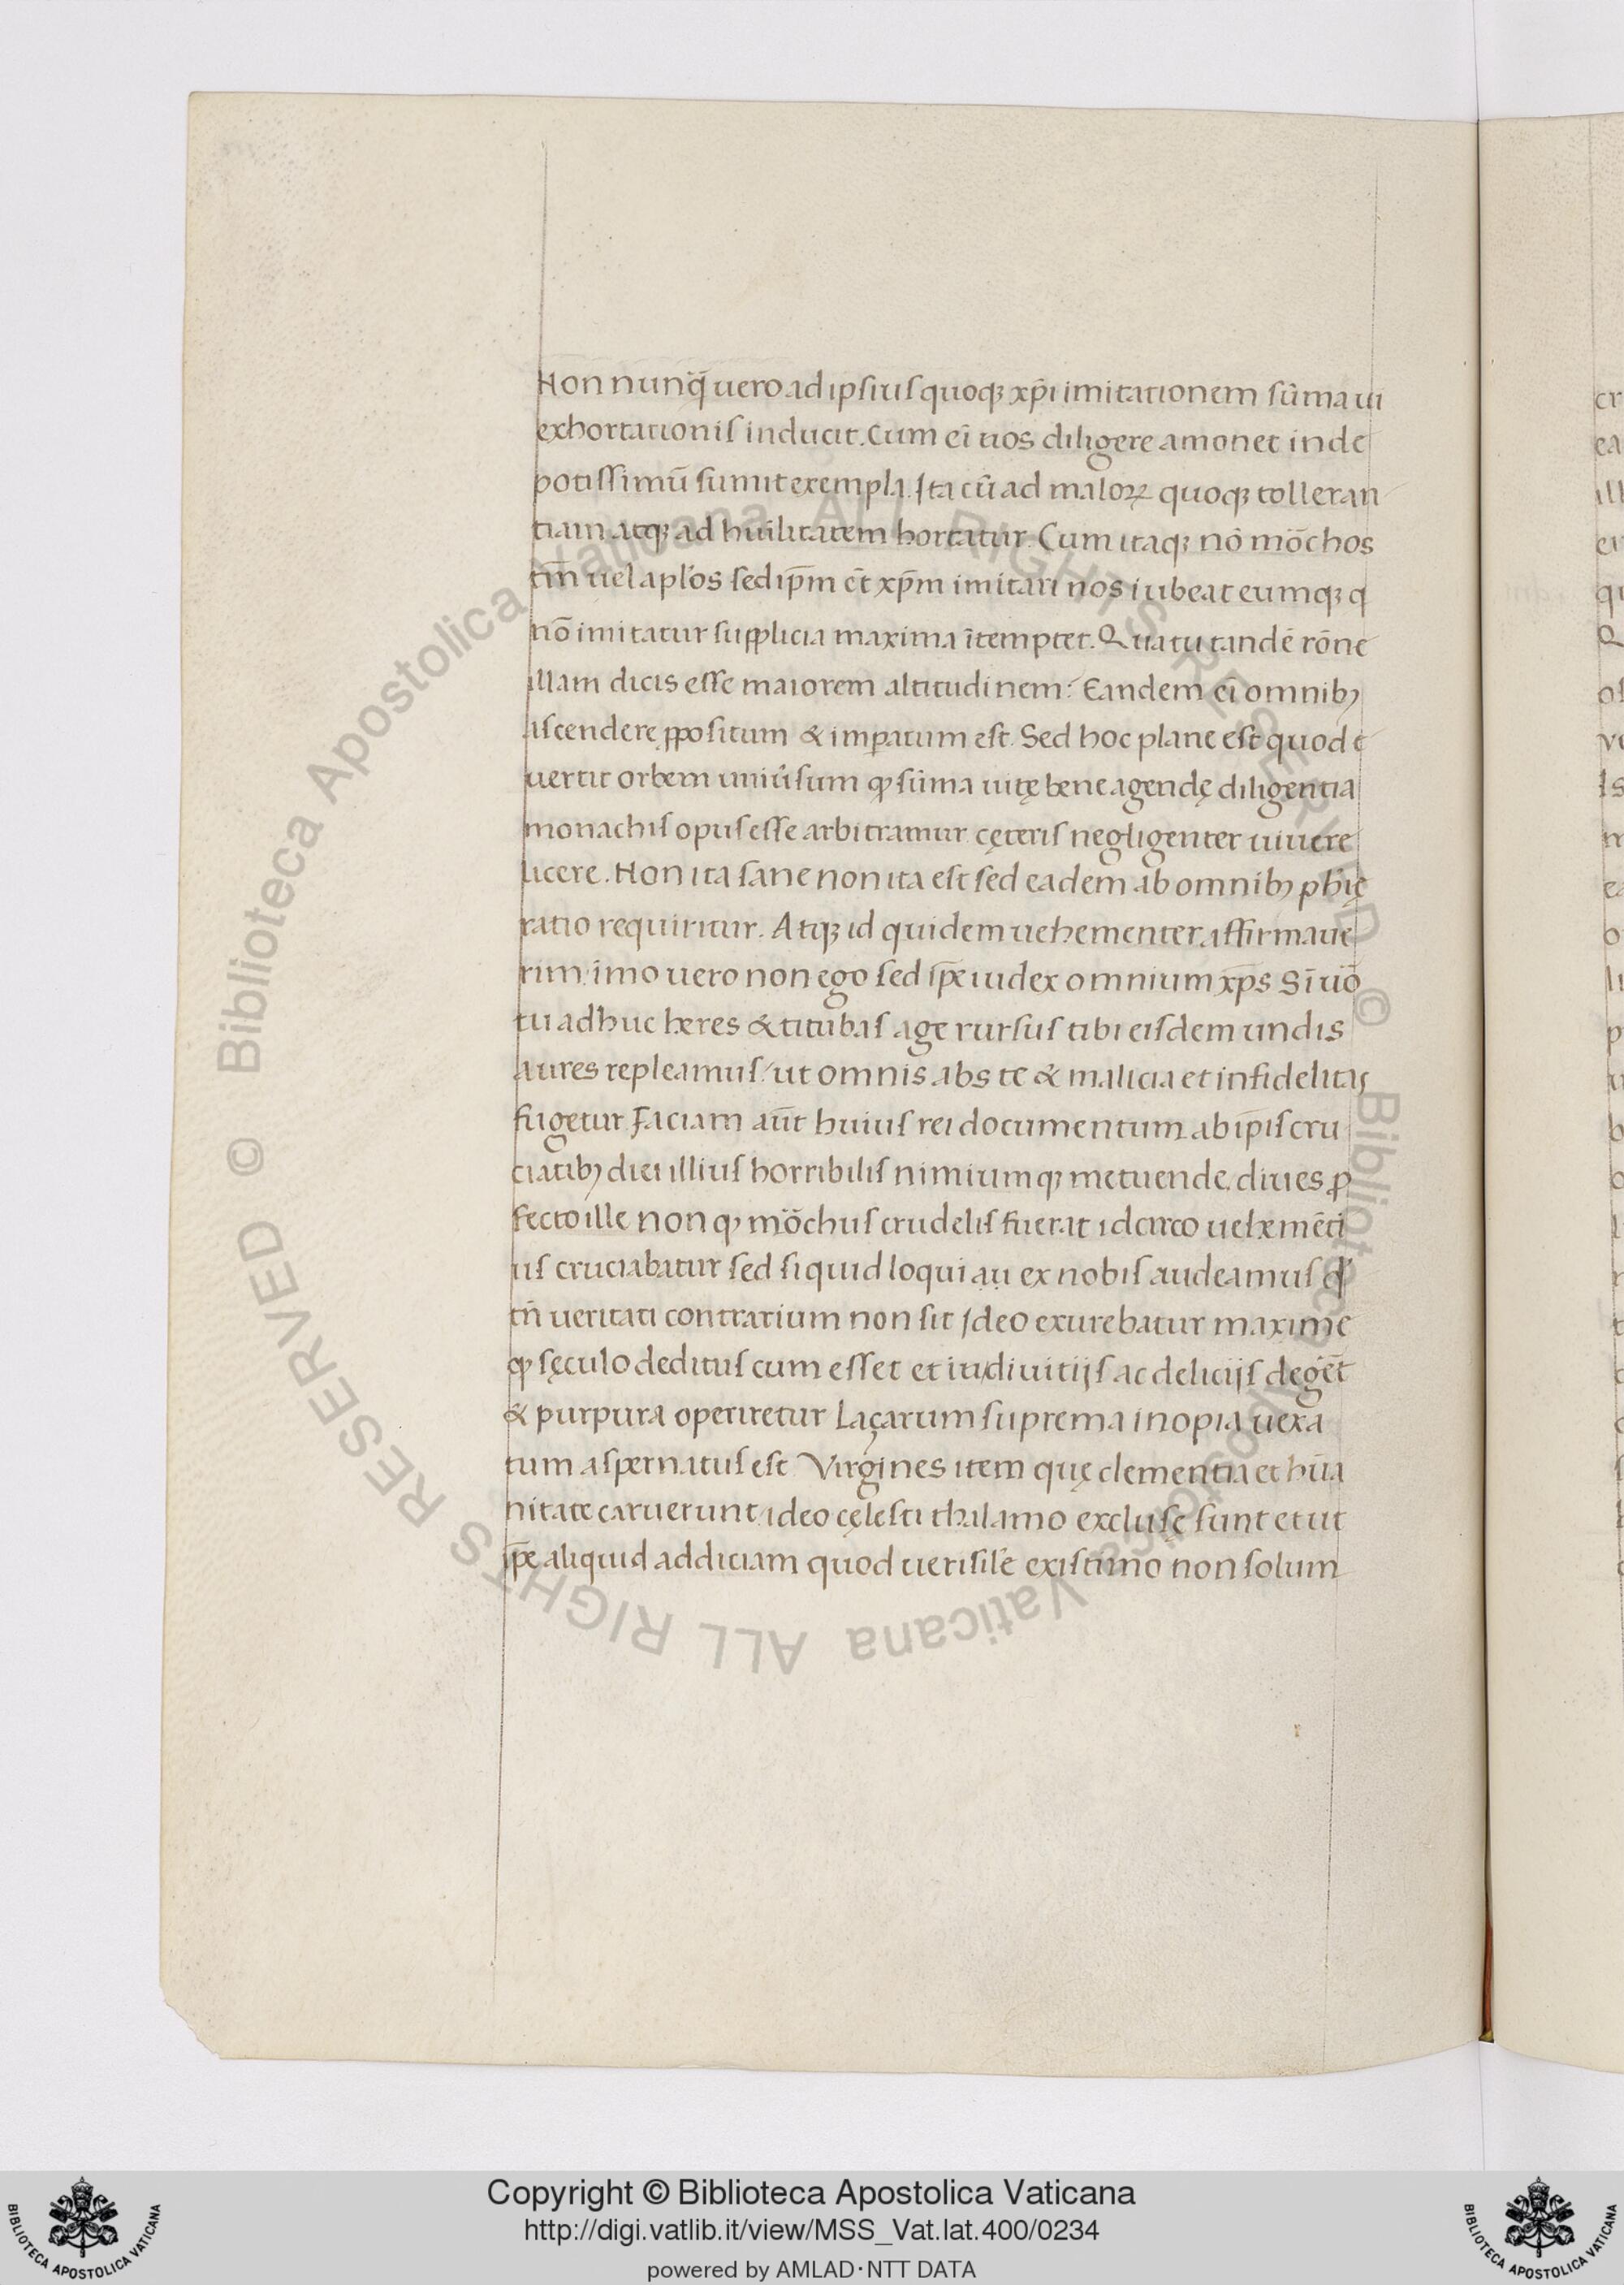 Non nunq̃ uero ad ipsius quoqꝫ xp̃i imitationem sũma ui
exhortationis inducit. Cum eĩ uos diligere amonet inde
potissimũ sumit exempla. Ita cũ ad maloꝝ quoqꝫ tolleran
tiam atqꝫ ad huĩlitatem hortatur. Cum itaqꝫ nõ mõchos
tm̃ uel apl̃os sed ip̃m et̃ xp̃m imitari nos iubeat eumqꝫ q
nõ imitatur supplicia maxima ĩtemptet. Qua tu tandẽ rõne
illam dicis esse maiorem altitudinem? Eandem eĩ omnibꝫ
ascendere ꝓpositum & imꝑatum est. Sed hoc plane est quod e
uertit orbem uniũsum ꝙ sũma uitę bene agendę diligentia
monachis opus esse arbitramur cęteris negligenter uiuere
licere. Non ita sane non ita est sed eadem ab omnibꝫ ph̃ię
ratio requiritur. Atqꝫ id quidem uehementer affirmaue
rim imo uero non ego sed ip̃e iudex omnium xp̃s Si uõ
tu adhuc heres & titubas age rursus tibi eisdem undis
aures repleamus / ut omnis abs te & malicia et infidelitas
fugetur Faciam aũt huius rei documentum ab ip̃is cru
ciatibꝫ diei illius horribilis nimiumqꝫ metuende. diues ꝓ
fecto ille non ꝙ mõchus crudelis fuerat idcirco uehemẽti
us cruciabatur sed si quid loqui au ex nobis audeamus qđ
tñ ueritati contrarium non sit Ideo exurebatur maxime
ꝙ sęculo deditus cum esset et in diuitijs ac delicijs deget̃
& purpura operiretur Laçarum suprema inopia uexa
tum aspernatus est Virgines item quę clementia et hũa
nitate caruerunt ideo cęlesti thalamo exclusę sunt et ut
ip̃e aliquid addiciam quod uerisil̃e existimo non solum
Copyright © Biblioteca Apostolica Vaticana
http://digi.vatlib.it/view/MSS_Vat.lat.400/0234
powered by AMLAD·NTT DATA